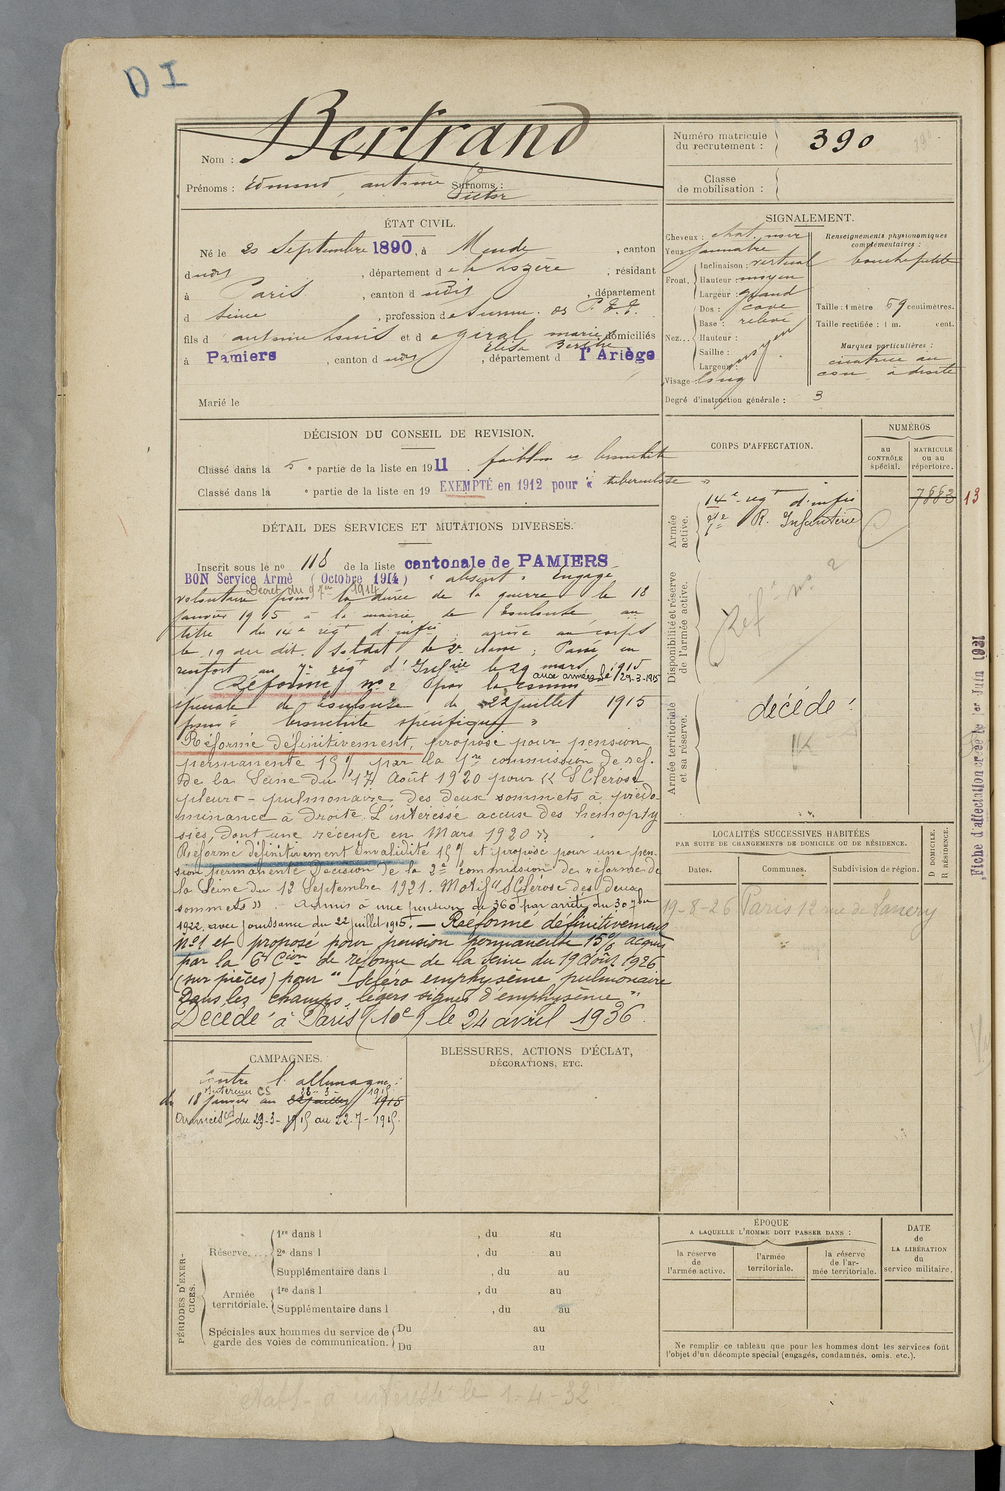 D I
Bertrand
Nom :
Prénoms : Edmond, antoine Surnoms :
Victor
Numéro matricule
du recrutement : 390
Classe
de mobilisation :
ÉTAT CIVIL.
Né le 20 Septembre 1890, à Mende, canton
dudit, département de la Lozère, résidant
à Paris, canton dudit, département
d Seine, profession de surnum. des P.T.T.
fils d antoine Louis et de giral marie domiciliés
Elisa Berthe
à Pamiers, canton dudit, département d l'Ariège
Marié le
SIGNALEMENT.
Cheveux : chat. noir
Yeux jaunâtre
Front. Inclinaison : vertical
Hauteur : moyen
Largeur : grand
Nez... Dos : cave
Base : relevé
Hauteur :
Saillie : moyen
Largeur :
Visage long
Degré d'instruction générale : 3
Renseignements physionomiques
complémentaires :
bouche petite
Taille : 1 mètre 59 centimètres.
Taille rectifiée : 1 m. cent.
Marques particulières :
cicatrice au
cou à droite
DÉCISION DU CONSEIL DE REVISION.
Classé dans la 5 e partie de la liste en 1911. faiblesse et bronchite
Classé dans la e partie de la liste en 19 EXEMPTÉ en 1912 pour " tuberculose "
DÉTAIL DES SERVICES ET MUTATIONS DIVERSES.
Inscrit sous le no 118 de la liste cantonale de PAMIERS
BON Service Armé (Octobre 1914) " absent " Engagé
Décret du 1914
volontaire pour la durée de la guerre le 18
janvier 1915 à la mairie de Toulouse au
titre du 14e régt d'infie arrivé au corps
le 19 du dit. Soldat de 2e classe ; Passé en
renfort au 7e régt d'Infrie le 29 mars 1915
aux armées le 29-3-1915
Réformé no 2 par la comm
spéciale de Toulouse du 22 juillet 1915
pour " bronchite spécifique "
Réformé définitivement, proposé pour pension
permanente 15% par la 1re commission de réf.
de la Seine du 17 Août 1920 pour « Sclérose
pleuro-pulmonaire des deux sommets à prédo-
minance à droite. L'intéressé accuse des hémopty
sies, dont une récente en Mars 1920 »
Réformé définitivement Invalidité 15% et proposé pour une pen-
sion permanente Décision de la 2e commission de réforme de
la Seine du 12 Septembre 1921. Motif « Sclérose des deux
sommets ». Admis à une pension de 360 f par arrêté du 30
1922, avec jouissance du 22 juillet 1915. — Réformé définitivement
No 1 et proposé pour pension permanente 15% acquis
par la 6e Cion de réforme de la Seine du 19 Août 1926
(sur pièces) pour " Scléro emphysème pulmonaire
Dans les champs, légers signes d'emphysème "
Décédé à Paris (10e) le 24 avril 1936
CORPS D'AFFECTATION.
NUMÉROS
au
CONTRÔLE
spécial.
MATRICULE
ou au
répertoire.
Armée
active.
14e régt d'infie
7e R. Infanterie
7882 13
Disponibilité et réserve
de l'armée active.
Réf no 2
Armée territoriale
et sa réserve.
décédé
Fiche d'affectation créée le 1er Juin 1931
LOCALITÉS SUCCESSIVES HABITÉES
PAR SUITE DE CHANGEMENTS DE DOMICILE OU DE RÉSIDENCE.
D DOMICILE.
R RÉSIDENCE.
Dates.
Communes.
Subdivision de région.
19-8-26 Paris 12 rue de Lancry
CAMPAGNES.
Contre l'allemagne :
Intérieur CS 28-3-1915
du 18 janvier au 22 juillet 1915
Aux armées du 29-3-1915 au 22-7-1915.
BLESSURES, ACTIONS D'ÉCLAT,
DÉCORATIONS, ETC.
PÉRIODES D'EXER-
CICES.
Réserve.... 1re dans l , du au
2e dans l , du au
Supplémentaire dans l , du au
Armée
territoriale. 1re dans l , du au
Supplémentaire dans l , du au
Spéciales aux hommes du service de Du au
garde des voies de communication. Du au
ÉPOQUE
A LAQUELLE L'HOMME DOIT PASSER DANS :
DATE
de
LA LIBÉRATION
du
service militaire.
la réserve
de
l'armée active.
l'armée
territoriale.
la réserve
de l'ar-
mée territoriale.
Ne remplir ce tableau que pour les hommes dont les services font
l'objet d'un décompte spécial (engagés, condamnés, omis, etc.).
le 1-4-32